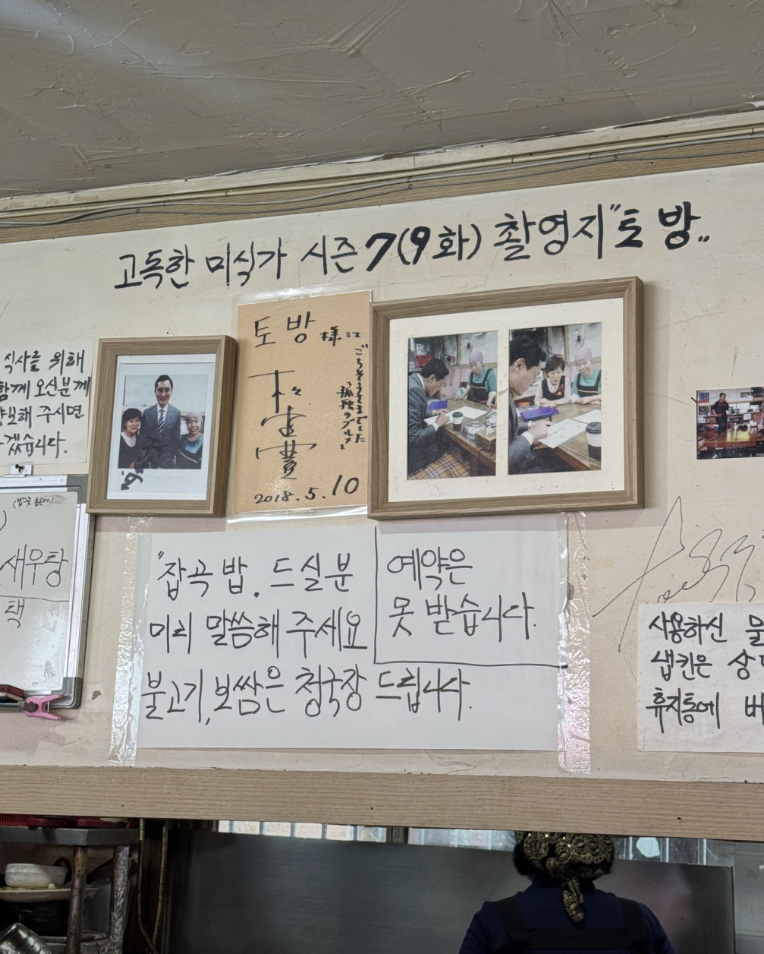 고독한 미식가 시즌 7(9화) 촬영지 "토방"
식사를 위해
함께 오신분께
양보해 주시면
겠습니다.
토방 様江
ごちそうさまでした
孤独のグルメ
松重豊
2018.5.10
새우탕
택
"잡곡밥" 드실분
미리 말씀해 주세요
불고기,보쌈은 청국장 드립니다.
예약은
못 받습니다.
사용하신 물
냅킨은
휴지통에 버